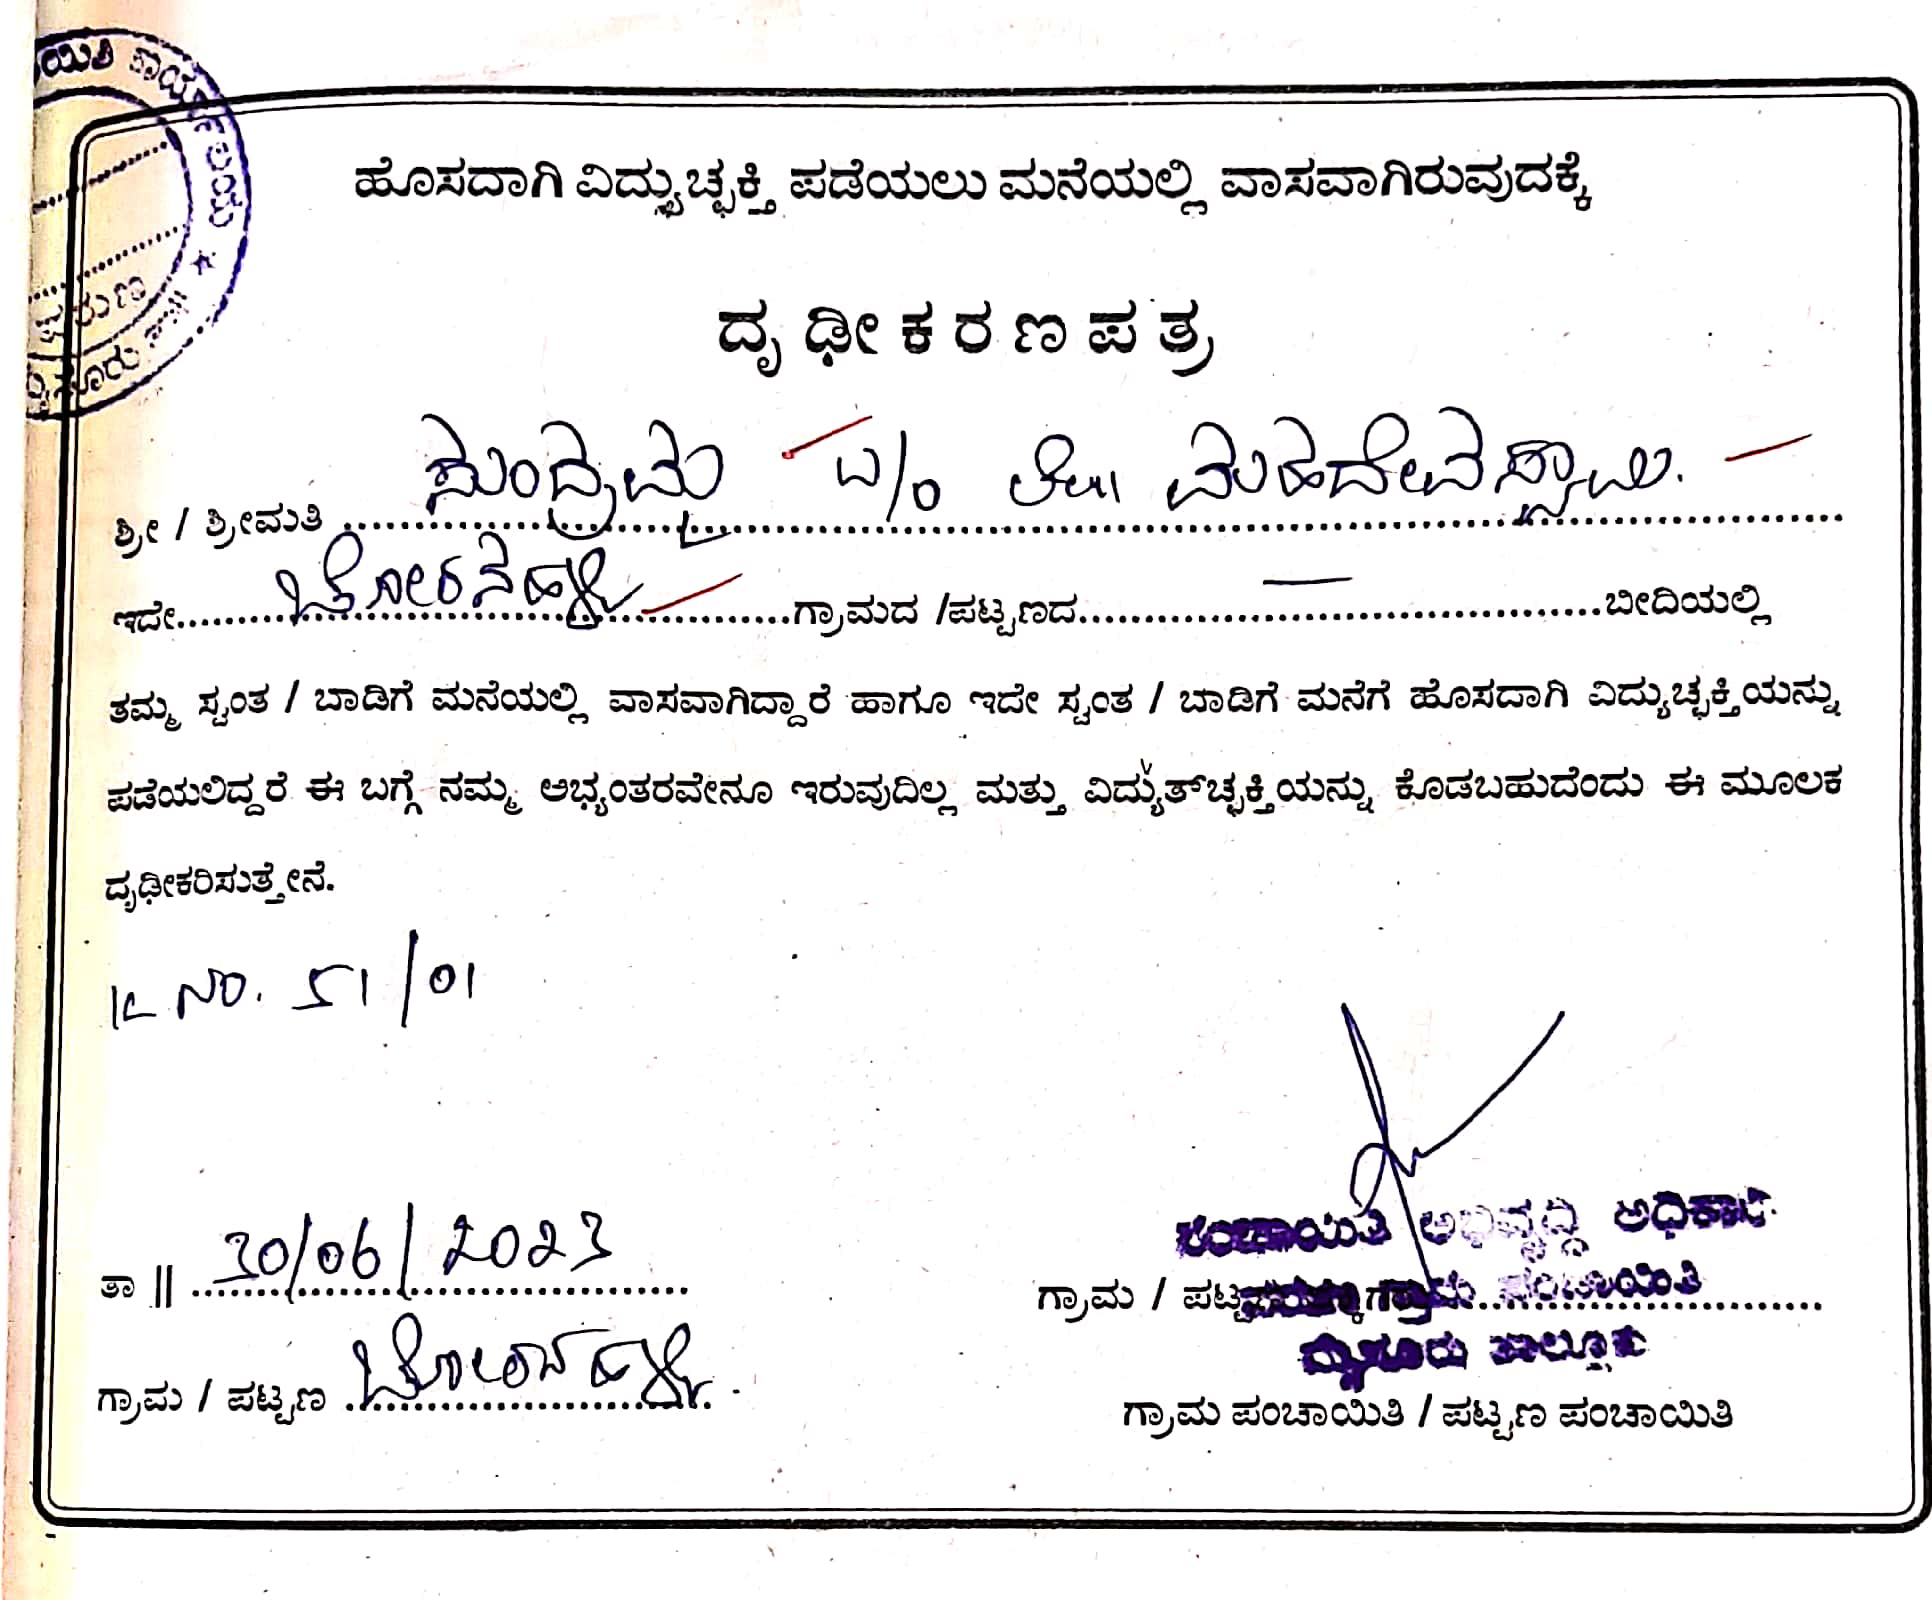 ಹೊಸದಾಗಿ ವಿದ್ಯುಚ್ಛಕ್ತಿ ಪಡೆಯಲು ಮನೆಯಲ್ಲಿ ವಾಸವಾಗಿರುವುದಕ್ಕೆ
ದೃಢೀಕರಣಪತ್ರ
ಶ್ರೀ / ಶ್ರೀಮತಿ ಸುಂದ್ರಮ್ಮ ಲೇ|| ಮಹದೇವಸ್ವಾಮಿ.
ಇದೇ ಚೋರನಹಳ್ಳಿ ಗ್ರಾಮದ /ಪಟ್ಟಣದ — ಬೀದಿಯಲ್ಲಿ
ತಮ್ಮ ಸ್ವಂತ / ಬಾಡಿಗೆ ಮನೆಯಲ್ಲಿ ವಾಸವಾಗಿದ್ದಾರೆ ಹಾಗೂ ಇದೇ ಸ್ವಂತ / ಬಾಡಿಗೆ ಮನೆಗೆ ಹೊಸದಾಗಿ ವಿದ್ಯುಚ್ಛಕ್ತಿಯನ್ನು
ಪಡೆಯಲಿದ್ದರೆ ಈ ಬಗ್ಗೆ ನಮ್ಮ ಅಭ್ಯಂತರವೇನೂ ಇರುವುದಿಲ್ಲ ಮತ್ತು ವಿದ್ಯುತ್‌ಚ್ಛಕ್ತಿಯನ್ನು ಕೊಡಬಹುದೆಂದು ಈ ಮೂಲಕ
ದೃಢೀಕರಿಸುತ್ತೇನೆ.
K NO. 51/01
ತಾ || 30/06/2023
ಗ್ರಾಮ / ಪಟ್ಟಣ ಚೋರನಹಳ್ಳಿ
ಪಂಚಾಯಿತಿ ಅಭಿವೃದ್ಧಿ ಅಧಿಕಾರಿ
ಗ್ರಾಮ / ಗ್ರಾಮ ಪಂಚಾಯಿತಿ
ಮೈಸೂರು ತಾಲ್ಲೂಕು
ಗ್ರಾಮ ಪಂಚಾಯಿತಿ / ಪಟ್ಟಣ ಪಂಚಾಯಿತಿ